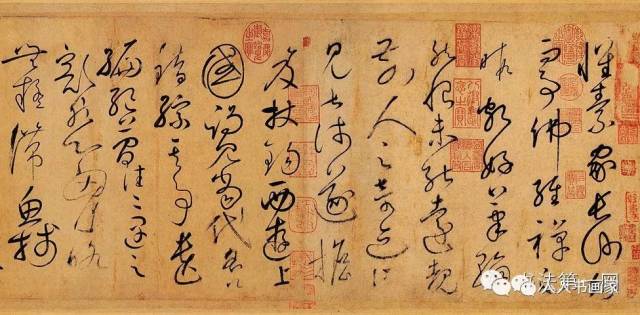 懷素家長沙幼而
事佛經禪之
暇頗好筆翰
然恨未能遠覩
前人之奇迹所
見甚淺遂擔
笈杖錫西遊上
國謁見當代名公
錯綜其事遺
編絕簡往往遇之
豁然心胸略
無疑滯魚牋
人人书画家